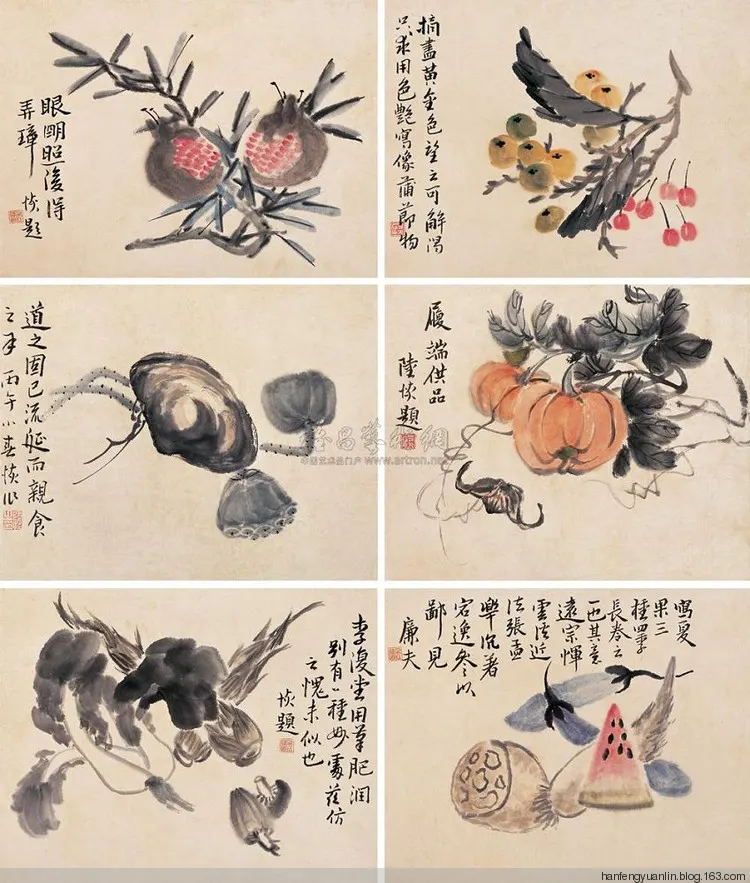 眼明照後得
弄璋 恢題
摘盡黃金色望之可解渴
只求用色艷寫像蒲節物
道之固已流涎而親食
之耳 丙午小春恢作
履端供品
陸恢題
李復堂用筆肥潤
別有一種妙處茲仿
之愧未似也
恢題
寫夏
果三
種畢
長卷之
西其意
遠宗惲
雲法近
法張孟
畢沉著
宕逸參以
鄙見
廉夫
www.artron.net
hanfengyuanlin.blog.163.com